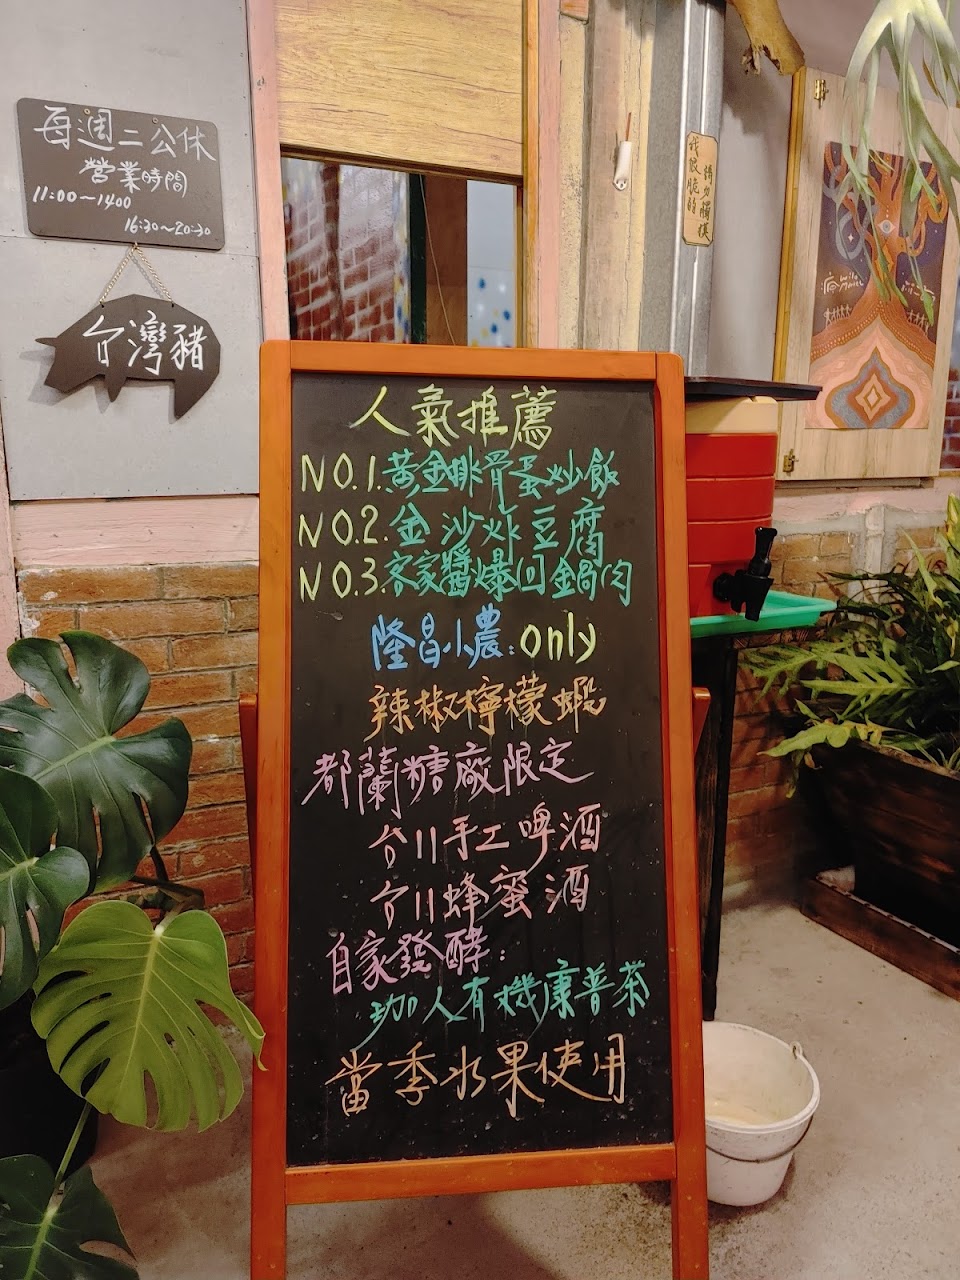 每週二公休
營業時間
11:00～1400
16:30～20:30
台灣豬
我很脆弱
請勿觸摸
人氣推薦
NO.1.黃金排骨蛋炒飯
NO.2.金沙炸豆腐
NO.3.客家醬爆回鍋肉
隆昌小農:only
辣椒檸檬蝦
都蘭糖廠限定
台11手工啤酒
台11蜂蜜酒
自家發酵:
珈人有機康普茶
當季水果使用